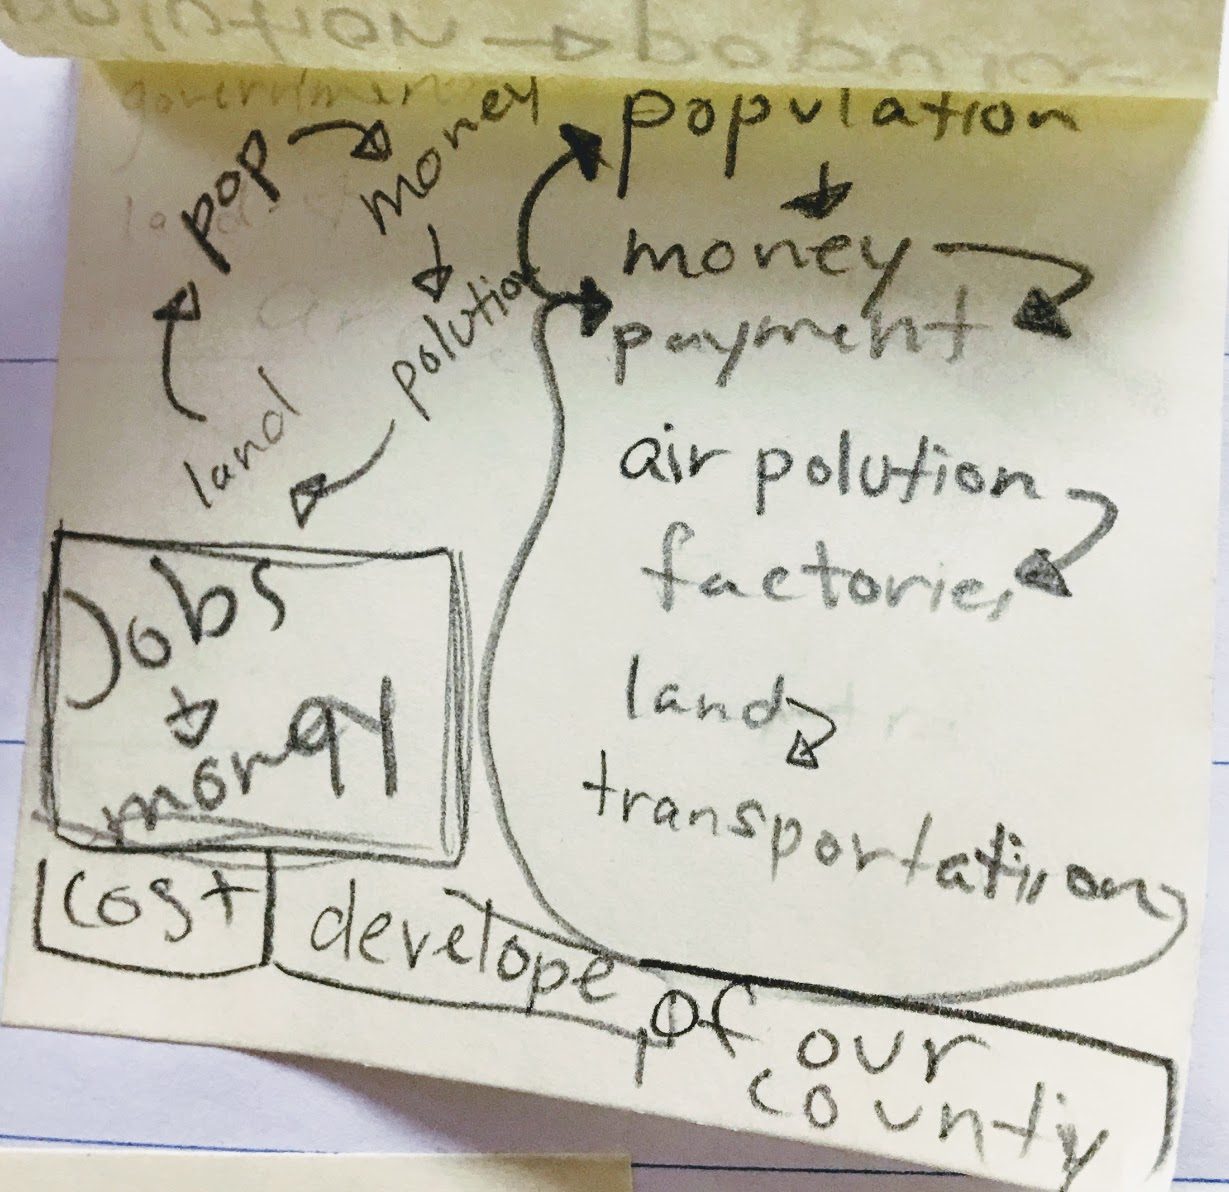 pop
money
polution
land
population
money
payment
air polution
factories
land
transportation
Jobs
money
cost
develope
of our
county